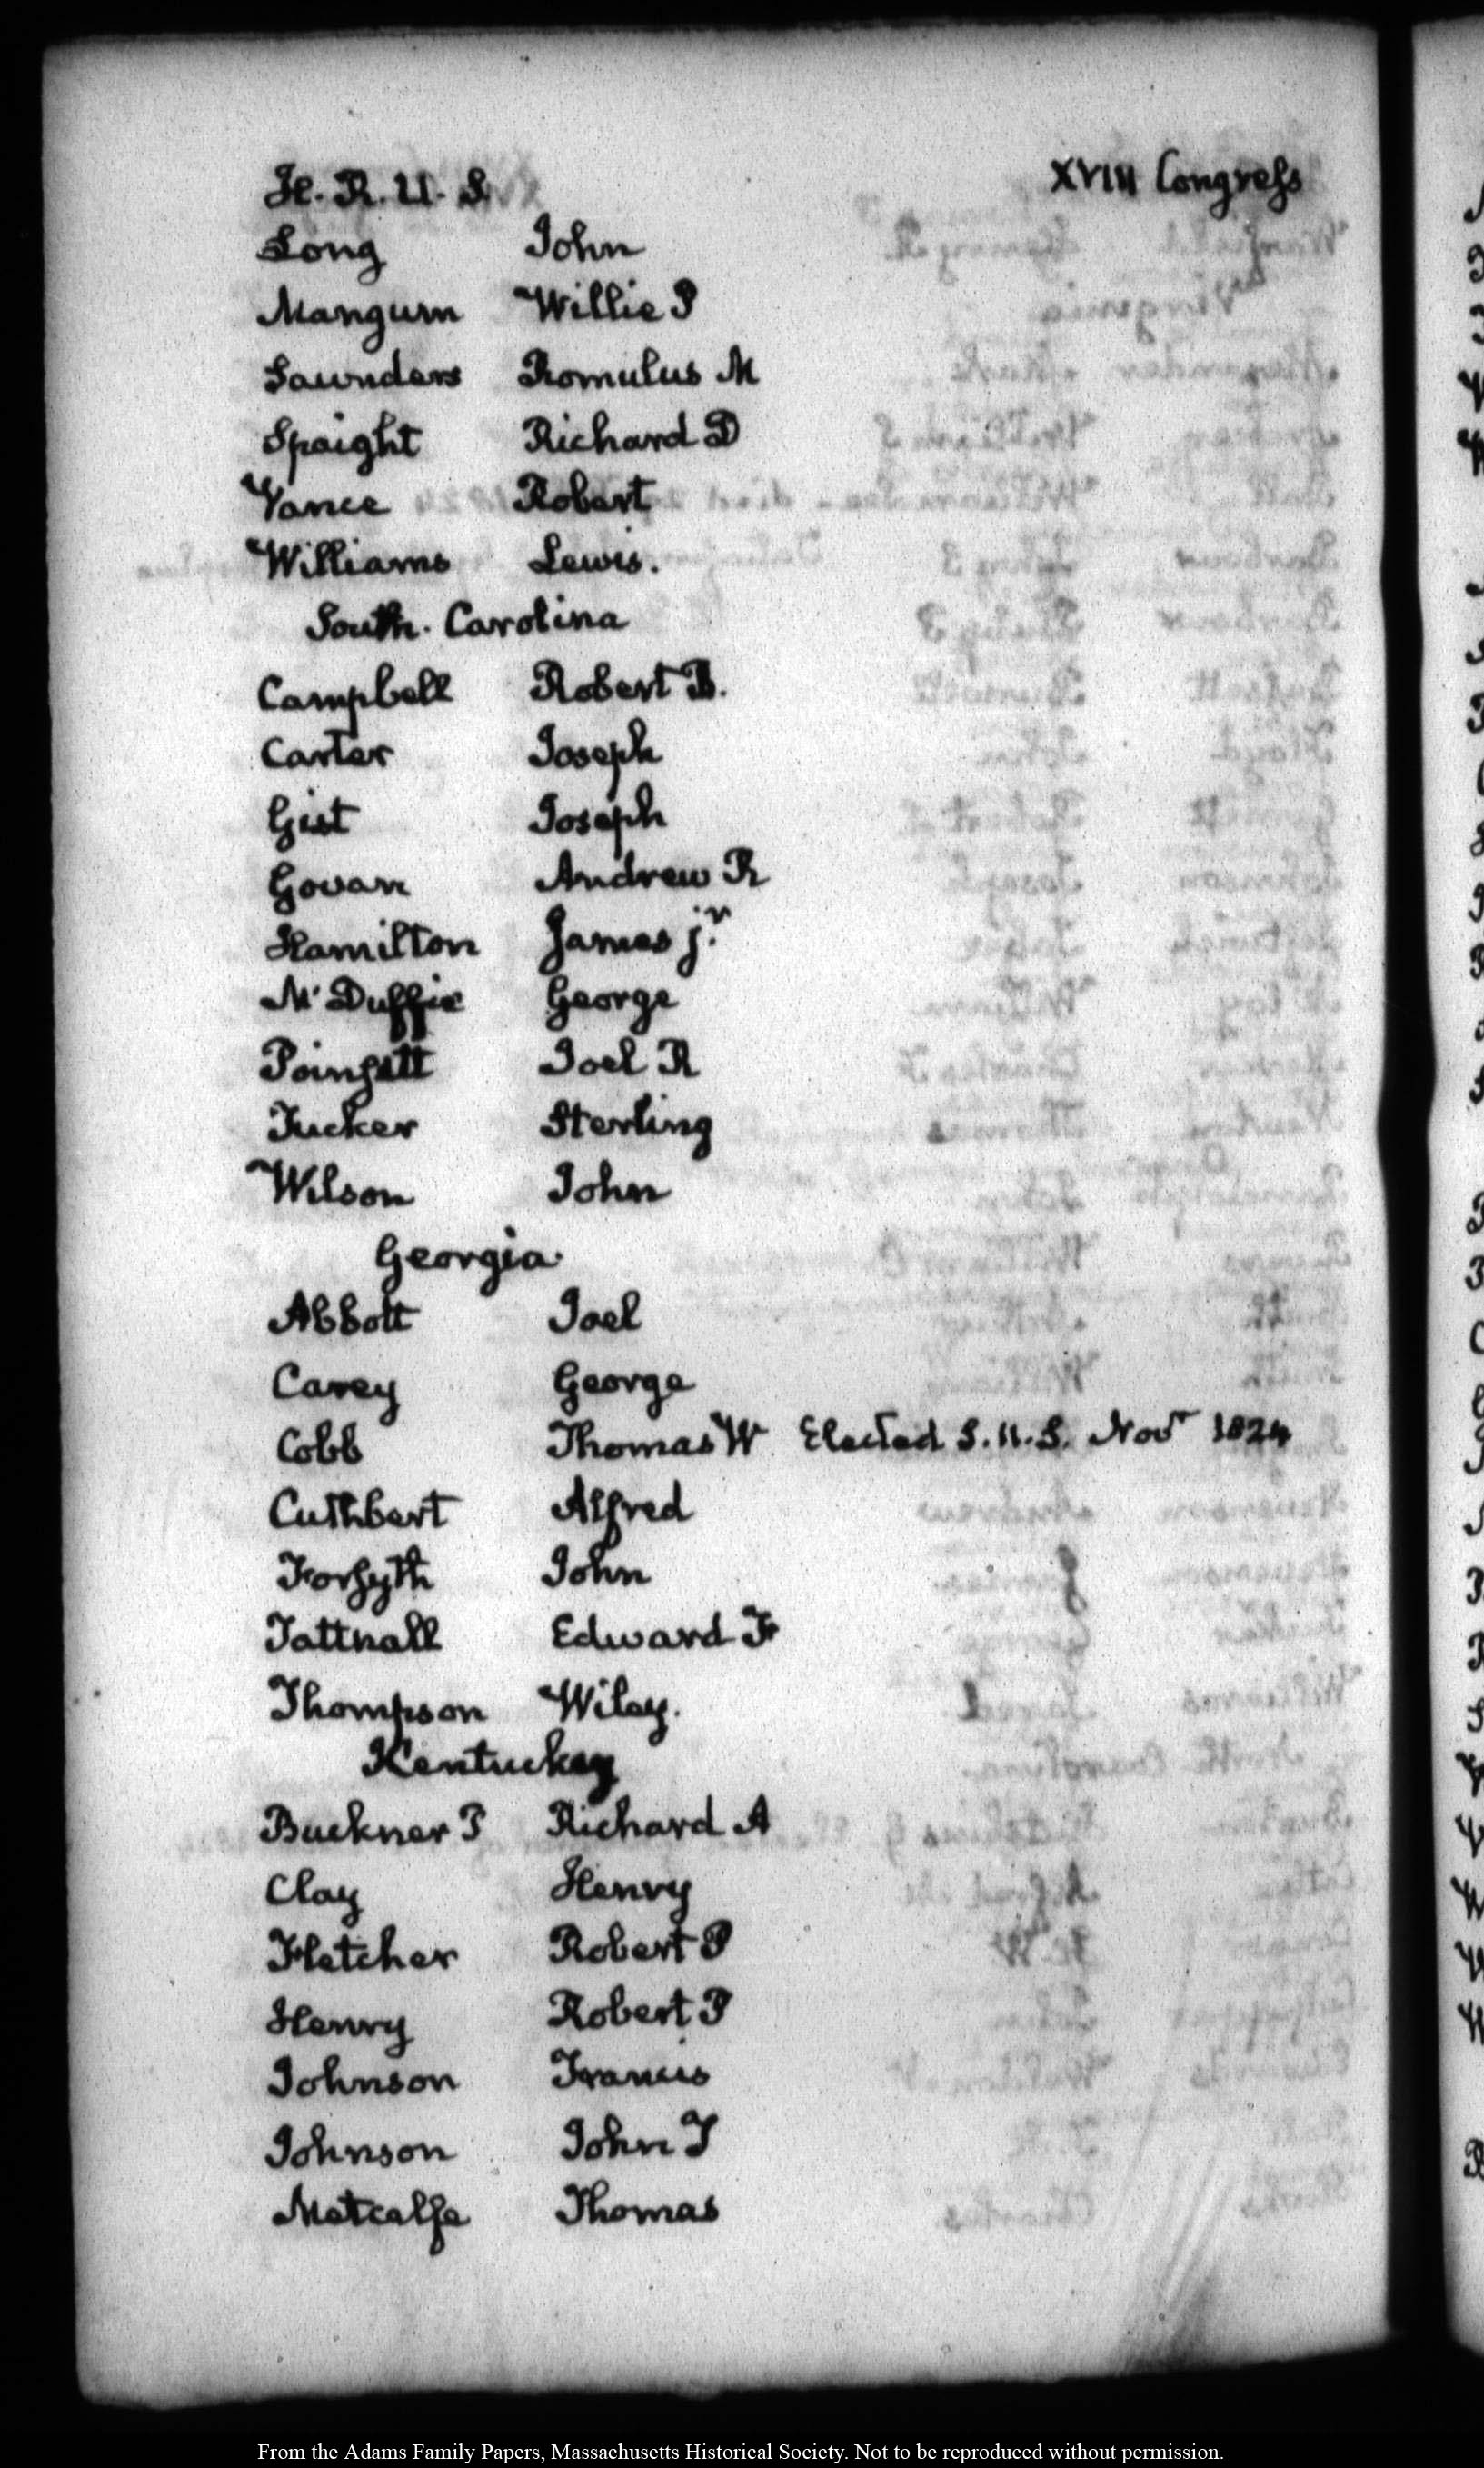 H. R. U. S. XVIII Congress
Long John
Mangum Willie P
Saunders Romulus M
Spaight Richard D
Vance Robert
Williams Lewis.
South. Carolina
Campbell Robert B.
Carter Joseph
Gist Joseph
Govan Andrew R
Hamilton James jr.
Mc Duffie George
Poinsett Joel R
Tucker Sterling
Wilson John
Georgia
Abbott Joel
Carey George
Cobb Thomas W Elected S.U.S. Novr 1824
Cuthbert Alfred
Forsyth John
Tattnall Edward F
Thompson Wiley.
Kentuckey
Buckner Richard A
Clay Henry
Fletcher Robert P
Henry Robert P
Johnson Francis
Johnson John T
Metcalfe Thomas
From the Adams Family Papers, Massachusetts Historical Society. Not to be reproduced without permission.